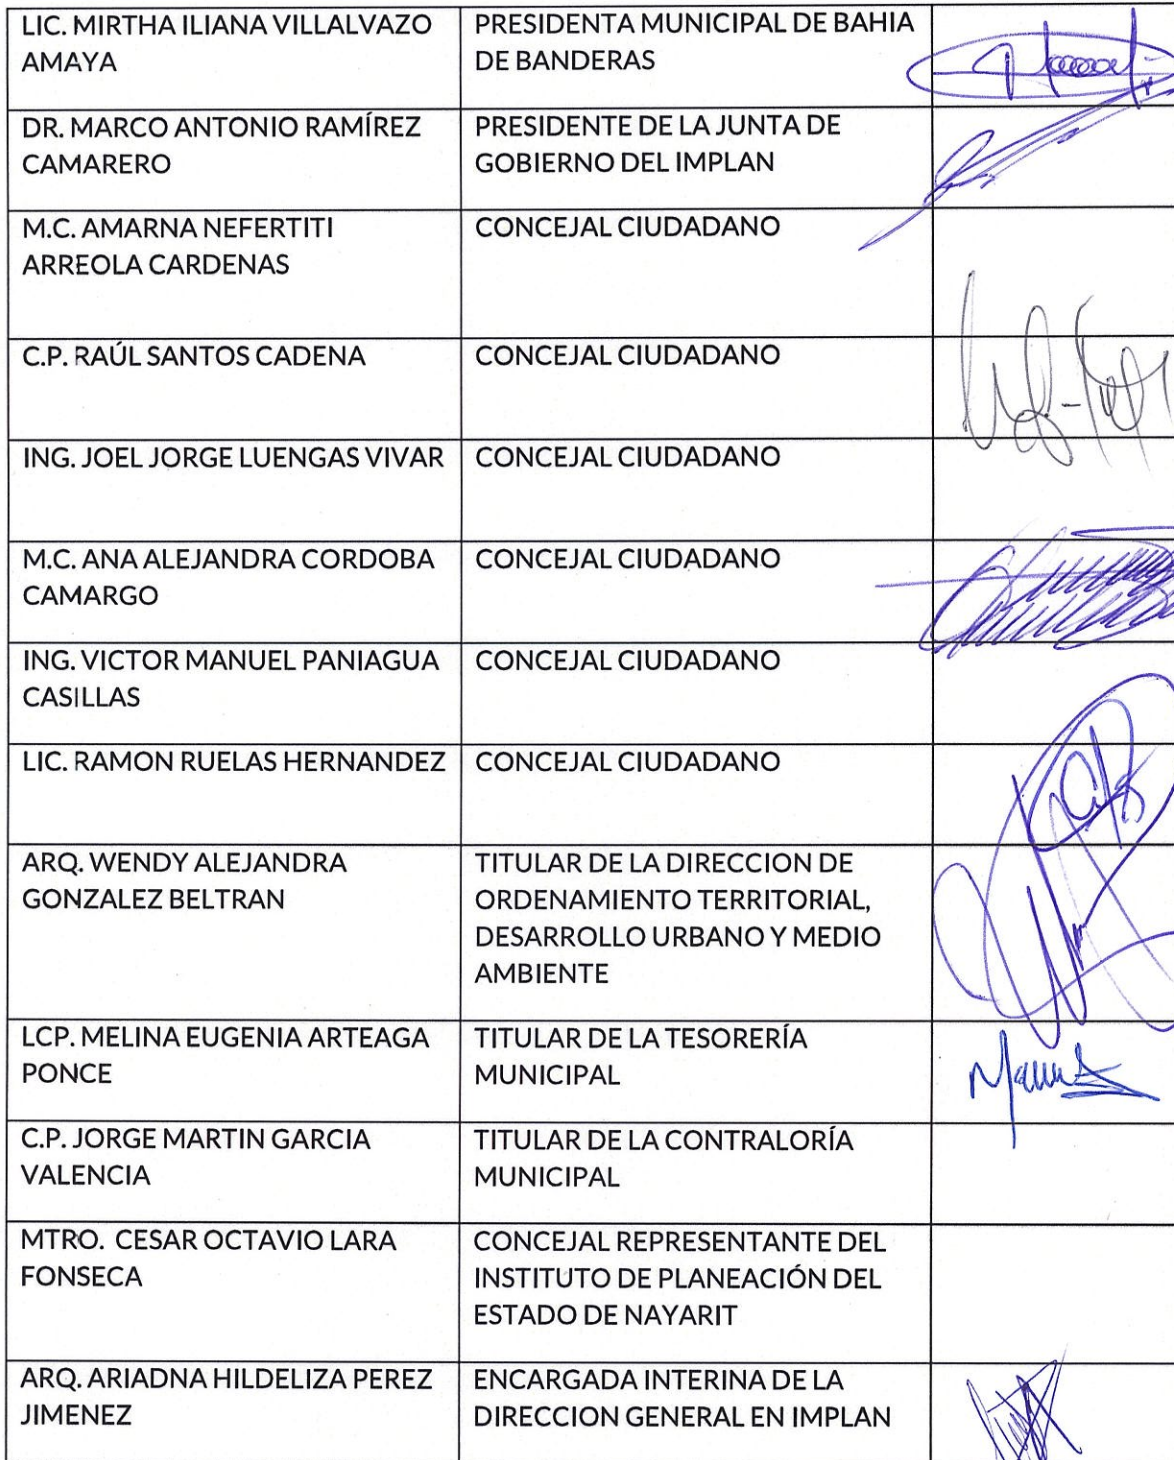 LIC. MIRTHA ILIANA VILLALVAZO
AMAYA
PRESIDENTA MUNICIPAL DE BAHIA
DE BANDERAS
DR. MARCO ANTONIO RAMÍREZ
CAMARERO
PRESIDENTE DE LA JUNTA DE
GOBIERNO DEL IMPLAN
M.C. AMARNA NEFERTITI
ARREOLA CARDENAS
CONCEJAL CIUDADANO
C.P. RAÚL SANTOS CADENA
CONCEJAL CIUDADANO
ING. JOEL JORGE LUENGAS VIVAR
CONCEJAL CIUDADANO
M.C. ANA ALEJANDRA CORDOBA
CAMARGO
CONCEJAL CIUDADANO
ING. VICTOR MANUEL PANIAGUA
CASILLAS
CONCEJAL CIUDADANO
LIC. RAMON RUELAS HERNANDEZ
CONCEJAL CIUDADANO
ARQ. WENDY ALEJANDRA
GONZALEZ BELTRAN
TITULAR DE LA DIRECCION DE
ORDENAMIENTO TERRITORIAL,
DESARROLLO URBANO Y MEDIO
AMBIENTE
LCP. MELINA EUGENIA ARTEAGA
PONCE
TITULAR DE LA TESORERÍA
MUNICIPAL
C.P. JORGE MARTIN GARCIA
VALENCIA
TITULAR DE LA CONTRALORÍA
MUNICIPAL
MTRO. CESAR OCTAVIO LARA
FONSECA
CONCEJAL REPRESENTANTE DEL
INSTITUTO DE PLANEACIÓN DEL
ESTADO DE NAYARIT
ARQ. ARIADNA HILDELIZA PEREZ
JIMENEZ
ENCARGADA INTERINA DE LA
DIRECCION GENERAL EN IMPLAN